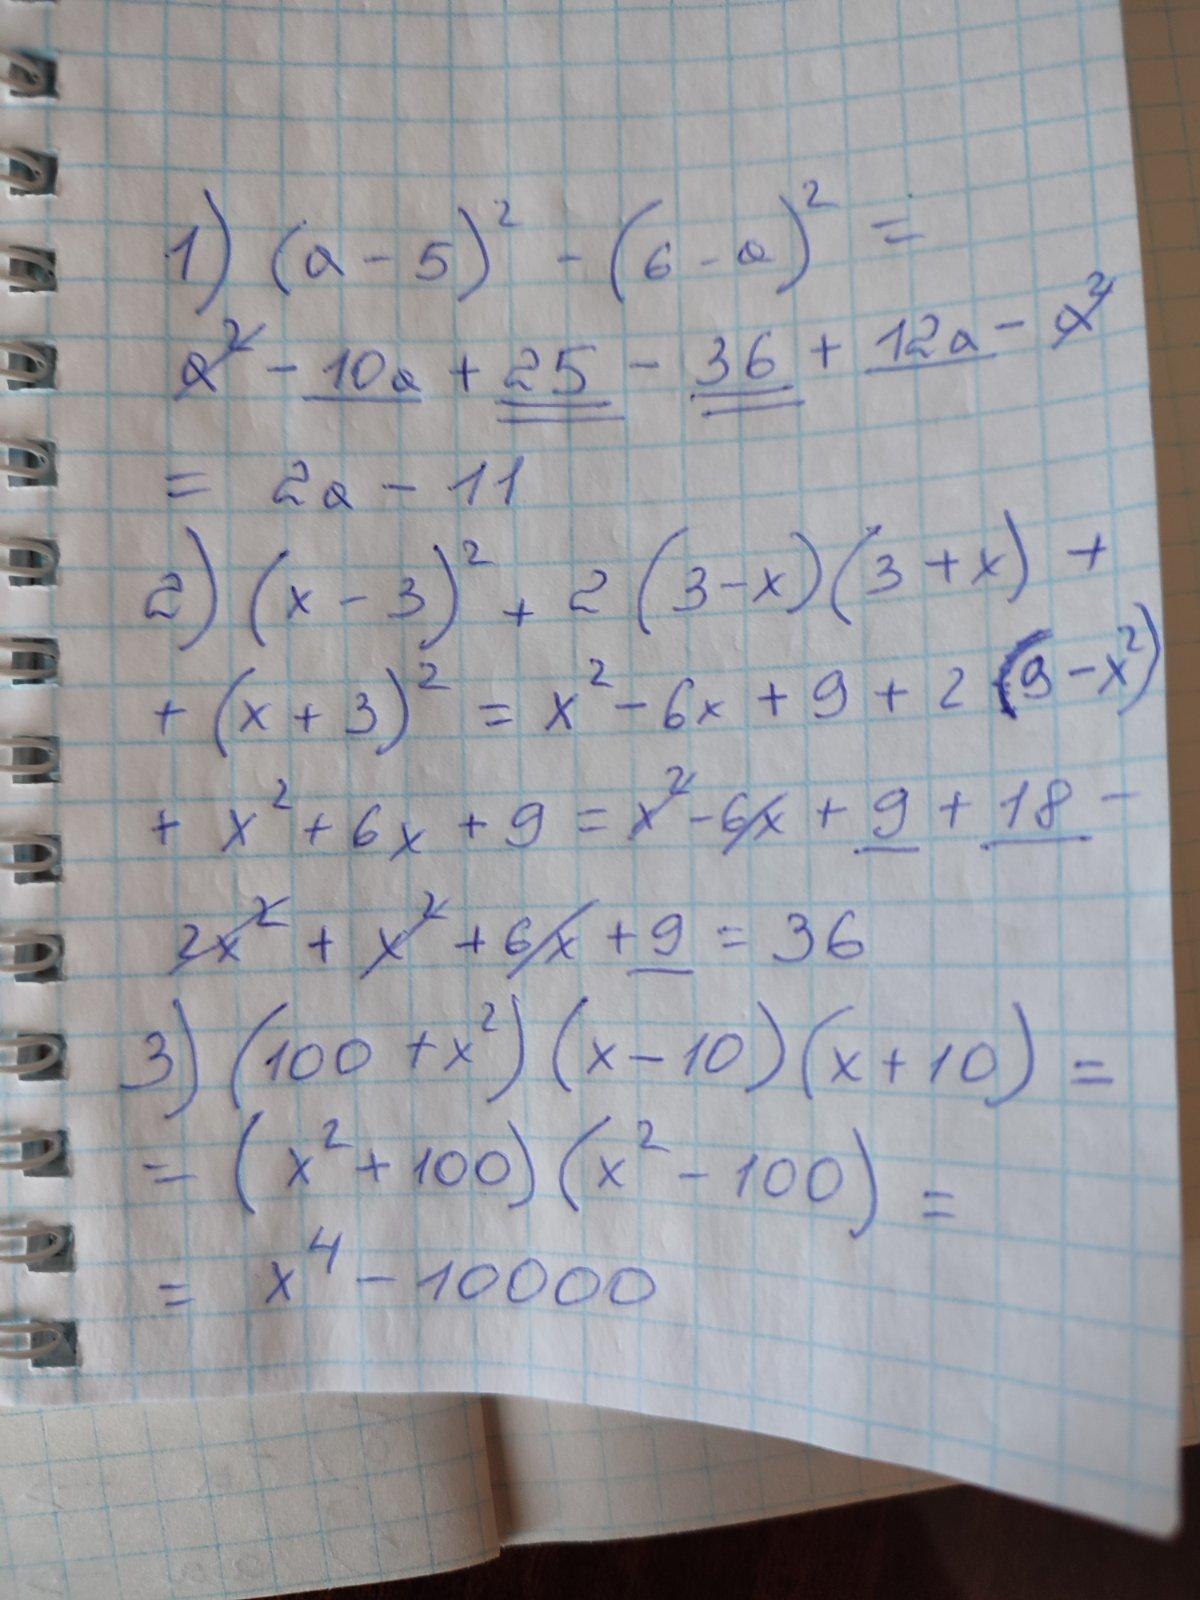 1) (a - 5)² - (6 - a)² =
a² - 10a + 25 - 36 + 12a - a²
= 2a - 11
2) (x - 3)² + 2 (3 - x)(3 + x) +
+ (x + 3)² = x² - 6x + 9 + 2 (9 - x²)
+ x² + 6x + 9 = x² - 6x + 9 + 18 -
2x² + x² + 6x + 9 = 36
3) (100 + x²)(x - 10)(x + 10) =
= (x² + 100)(x² - 100) =
= x⁴ - 10000